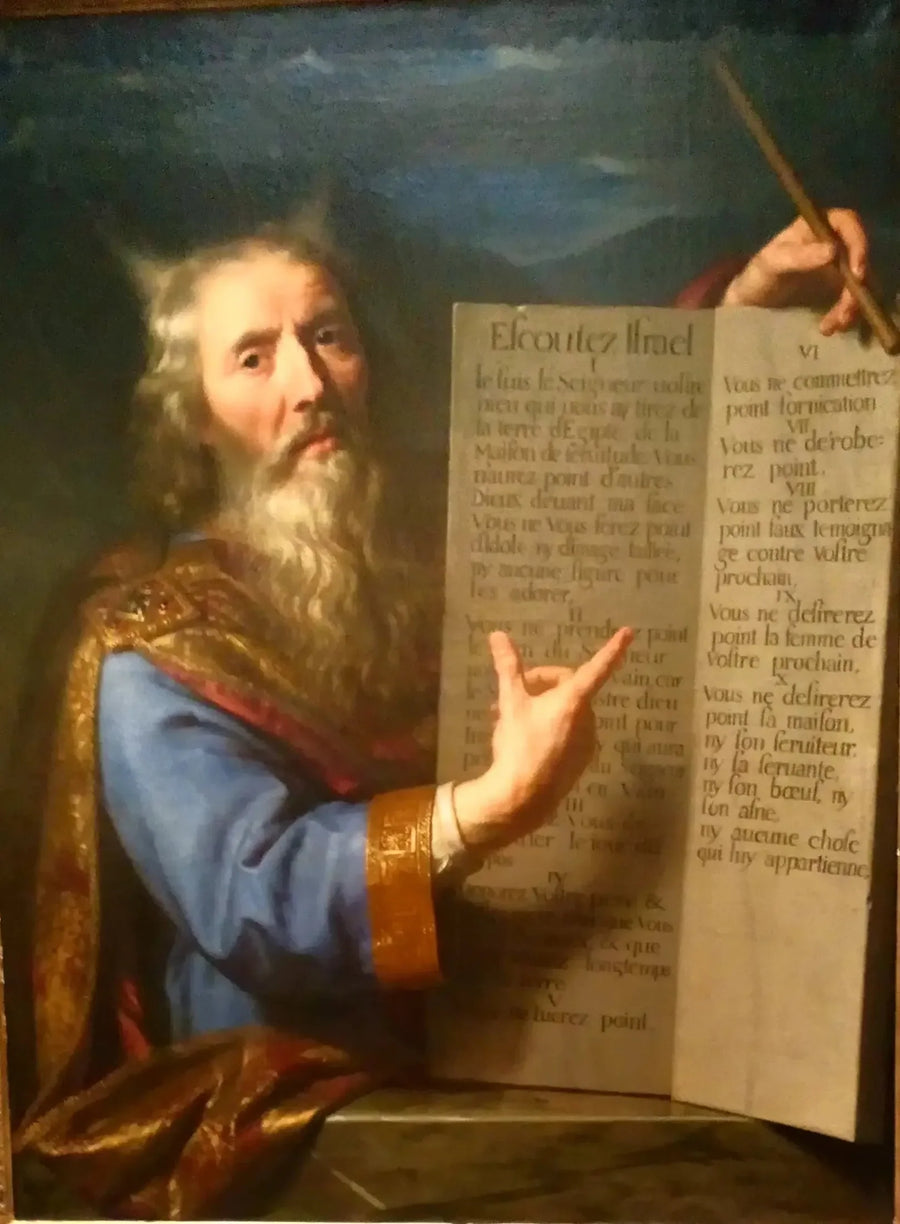 Escoutez Israel
I
Ie suis le Seigneur vostre
Dieu qui vous ay tirez de
la terre d'Egipte, de la
Maison de seruitude. Vous
n'aurez point d'autres
Dieux deuant ma face
Vous ne Vous ferez point
d'Idole ny d'image taillée,
ny aucune figure pour
les adorer,
II
Vous ne prendrez point
du Seigneur
vain, car
dieu
point pour
qui aura
Seigneur
en Vain
III
Vous
le iour du
IV
Vostre pere &
que Vous
& que
longtemps
terre
V
tuerez point.
VI
Vous ne commettrez
point fornication
VII
Vous ne de'robe=
rez point.
VIII
Vous ne porterez
point faux temoigna
ge contre Vostre
prochain,
IX,
Vous ne desirerez
point la femme de
Vostre prochain,
X
Vous ne desirerez
point sa maison,
ny son seruiteur,
ny sa seruante,
ny son bœuf, ny
son asne,
ny aucune chose
qui luy appartienne,